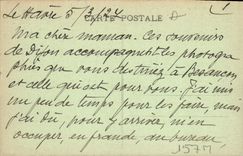 Le Havre 5/3/24
1
CARTE POSTALE
Ma cher maman. Ces couseurs
de Dijon accompagnent les photogra
phies que vous destinez à Besançon
et celle qui est pour vous. J'ai mis
un peu de temps pour les faire, mais
j'ai dû, pour y arriver, m'en
occuper, en fraude, au bureau
1577